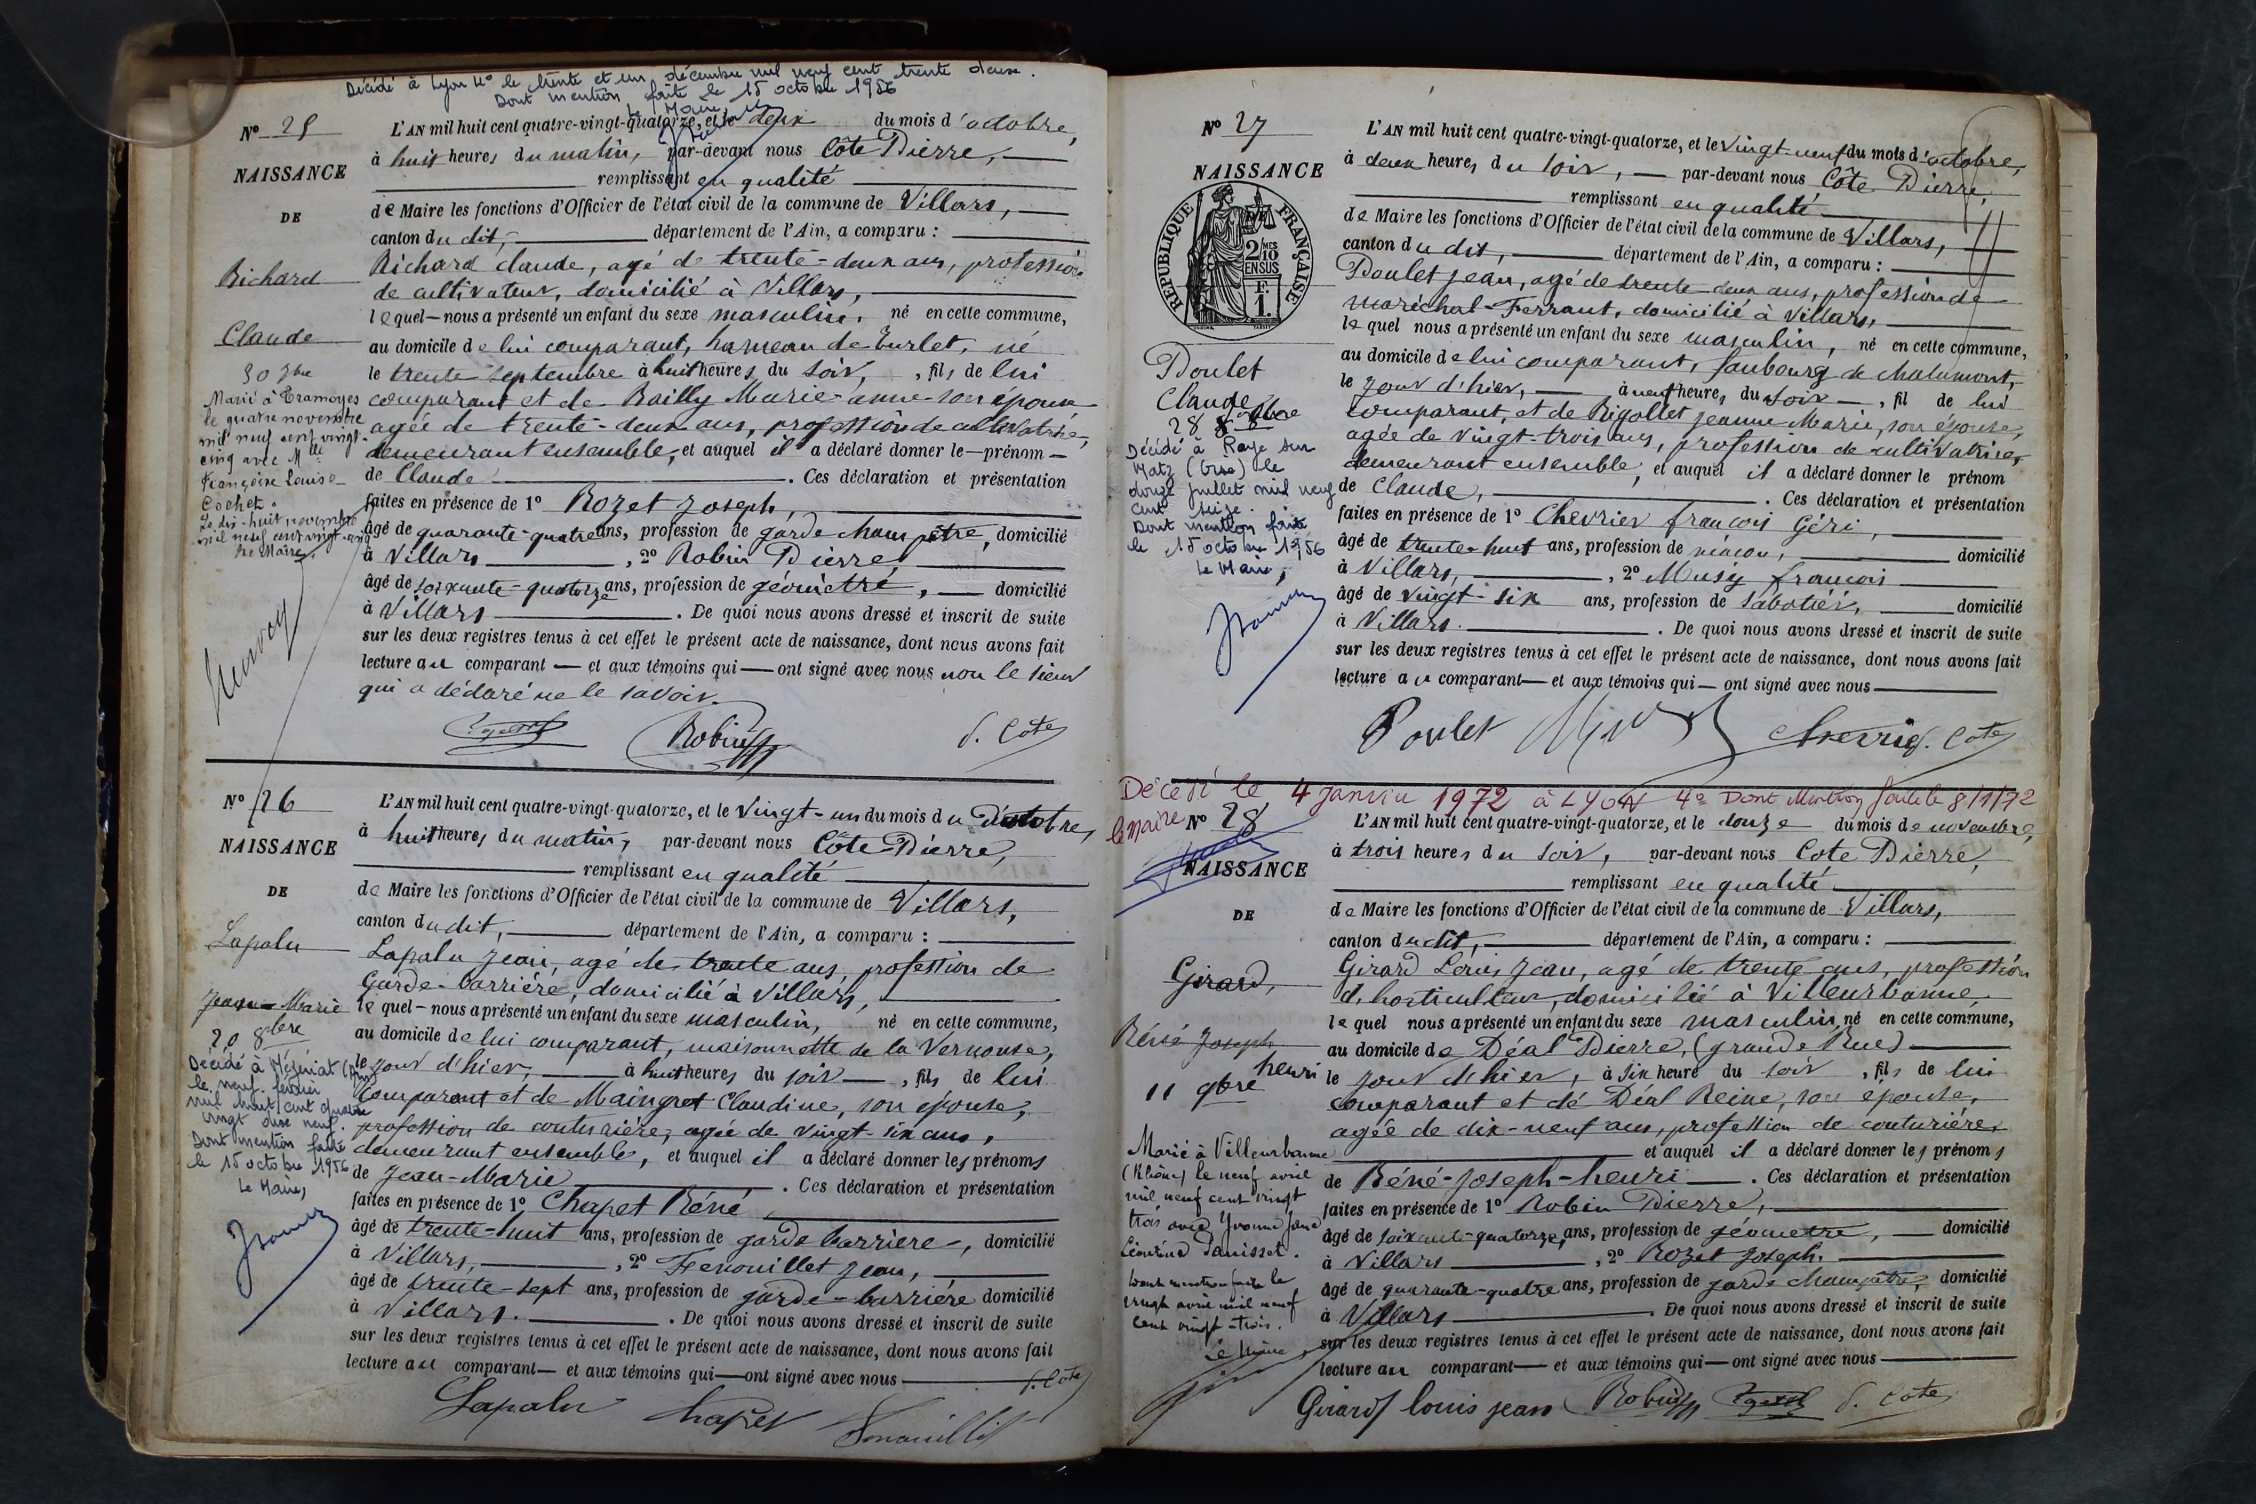 Décidé à Lyon 4e le trente et un décembre mil neuf cent trente deux.
Dont mention faite le 15 octobre 1956
Le Maire,
N° 25
NAISSANCE
DE
Richard
Claude
30 7bre
Marié à Tramoyes
le quatre novembre
mil neuf cent vingt-
cinq avec Mlle
Françoise Louise
Cochet.
Le dix-huit novembre
mil neuf cent vingt-cinq
Le Maire,
L'AN mil huit cent quatre-vingt-quatorze, et le deux du mois d'octobre,
à huit heures du matin, par-devant nous Côte Pierre,
remplissant en qualité
de Maire les fonctions d'Officier de l'état civil de la commune de Villars,
canton du dit, département de l'Ain, a comparu :
Richard Claude, agé de trente-deux ans, profession
de cultivateur, domicilié à Villars,
lequel nous a présenté un enfant du sexe masculin, né en cette commune,
au domicile de lui comparant, hameau de Turlet, né
le trente septembre à huit heures du soir, , fils de lui
comparant et de Bailly Marie-anne son épouse
agée de trente-deux ans, profession de cultivatrice,
demeurant ensemble, et auquel il a déclaré donner le prénom
de Claude . Ces déclaration et présentation
faites en présence de 1° Rozet Joseph,
âgé de quarante-quatre ans, profession de garde champêtre, domicilié
à Villars , 2° Robin Pierre,
âgé de soixante-quatorze ans, profession de géomètre, domicilié
à Villars . De quoi nous avons dressé et inscrit de suite
sur les deux registres tenus à cet effet le présent acte de naissance, dont nous avons fait
lecture au comparant et aux témoins qui ont signé avec nous non le sieur
qui a déclaré ne le savoir.
Robin P. Côte
N° 26
NAISSANCE
DE
Lapalu
Jean-Marie
20 8bre
Décédé à Mézériat (Ain)
le neuf février
mil huit cent quatre
vingt dix neuf.
Dont mention faite
le 15 octobre 1956
Le Maire,
L'AN mil huit cent quatre-vingt-quatorze, et le vingt-un du mois d'octobre,
à huit heures du matin, par-devant nous Côte Pierre,
remplissant en qualité
de Maire les fonctions d'Officier de l'état civil de la commune de Villars,
canton du dit, département de l'Ain, a comparu :
Lapalu Jean, agé de trente ans, profession de
garde-barrière, domicilié à Villars,
lequel nous a présenté un enfant du sexe masculin, né en cette commune,
au domicile de lui comparant, maisonnette de la Vernouse,
le jour d'hier, à huit heures du soir , fils de lui
comparant et de Maingret Claudine, son épouse,
profession de couturière, agée de vingt-six ans,
demeurant ensemble, et auquel il a déclaré donner les prénoms
de Jean-Marie . Ces déclaration et présentation
faites en présence de 1° Chapet Réné,
âgé de trente-huit ans, profession de garde barrière, domicilié
à Villars, , 2° Fenouillet Jean,
âgé de trente-sept ans, profession de garde-barrière domicilié
à Villars. . De quoi nous avons dressé et inscrit de suite
sur les deux registres tenus à cet effet le présent acte de naissance, dont nous avons fait
lecture au comparant et aux témoins qui ont signé avec nous
P. Côte
Lapalu Chapet Fenouillet
N° 27
NAISSANCE
RÉPUBLIQUE FRANÇAISE
2/10MES
EN SUS
F.
1.
Poulet
Claude
28 8bre
Décédé à Roye sur
Matz (Oise) le
douze juillet mil neuf
cent seize.
Dont mention faite
le 15 octobre 1956
Le Maire,
L'AN mil huit cent quatre-vingt-quatorze, et le vingt-neuf du mois d'octobre,
à deux heures du soir, par-devant nous Côte Pierre,
remplissant en qualité
de Maire les fonctions d'Officier de l'état civil de la commune de Villars,
canton du dit, département de l'Ain, a comparu :
Poulet Jean, agé de trente deux ans, profession de
maréchal-Ferrant, domicilié à Villars,
lequel nous a présenté un enfant du sexe masculin, né en cette commune,
au domicile de lui comparant, faubourg de Chalamont,
le jour d'hier, à neuf heures du soir , fil de lui
comparant, et de Rigollet Jeanne Marie, son épouse,
agée de vingt-trois ans, profession de cultivatrice,
demeurant ensemble, et auquel il a déclaré donner le prénom
de Claude, . Ces déclaration et présentation
faites en présence de 1° Chevrier françois Géri,
âgé de trente-huit ans, profession de maçon, domicilié
à Villars, , 2° Musy françois
âgé de vingt-six ans, profession de sabotier, domicilié
à Villars. . De quoi nous avons dressé et inscrit de suite
sur les deux registres tenus à cet effet le présent acte de naissance, dont nous avons fait
lecture au comparant et aux témoins qui ont signé avec nous
Poulet Chevrier P. Côte
Décédé le 4 Janvier 1972 à LYON 4e Dont Mention faite le 8/1/72
le Maire
N° 28
NAISSANCE
DE
Girard,
Réné Joseph
henri
11 9bre
Marié à Villeurbanne
(Rhône) le neuf avril
mil neuf cent vingt
trois avec Yvonne Jane
Léontine Panisset.
Dont mention faite le
vingt avril mil neuf
cent vingt-trois.
Le Maire,
L'AN mil huit cent quatre-vingt-quatorze, et le douze du mois de novembre,
à trois heures du soir, par-devant nous Cote Pierre,
remplissant en qualité
de Maire les fonctions d'Officier de l'état civil de la commune de Villars,
canton du dit, département de l'Ain, a comparu :
Girard Louis Jean, agé de trente ans, profession
d'horticulteur, domicilié à Villeurbanne,
lequel nous a présenté un enfant du sexe masculin né en cette commune,
au domicile de Déal Pierre, (grande Rue)
le jour d'hier, à six heure du soir , fils de lui
comparant et de Déal Reine, son épouse,
agée de dix-neuf ans, profession de couturière,
et auquel il a déclaré donner les prénoms
de Réné-Joseph-henri . Ces déclaration et présentation
faites en présence de 1° Robin Pierre,
âgé de soixante-quatorze ans, profession de géomètre, domicilié
à Villars , 2° Rozet Joseph.
âgé de quarante-quatre ans, profession de garde champêtre, domicilié
à Villars . De quoi nous avons dressé et inscrit de suite
sur les deux registres tenus à cet effet le présent acte de naissance, dont nous avons fait
lecture au comparant et aux témoins qui ont signé avec nous
Girard louis jean Robin P. Côte